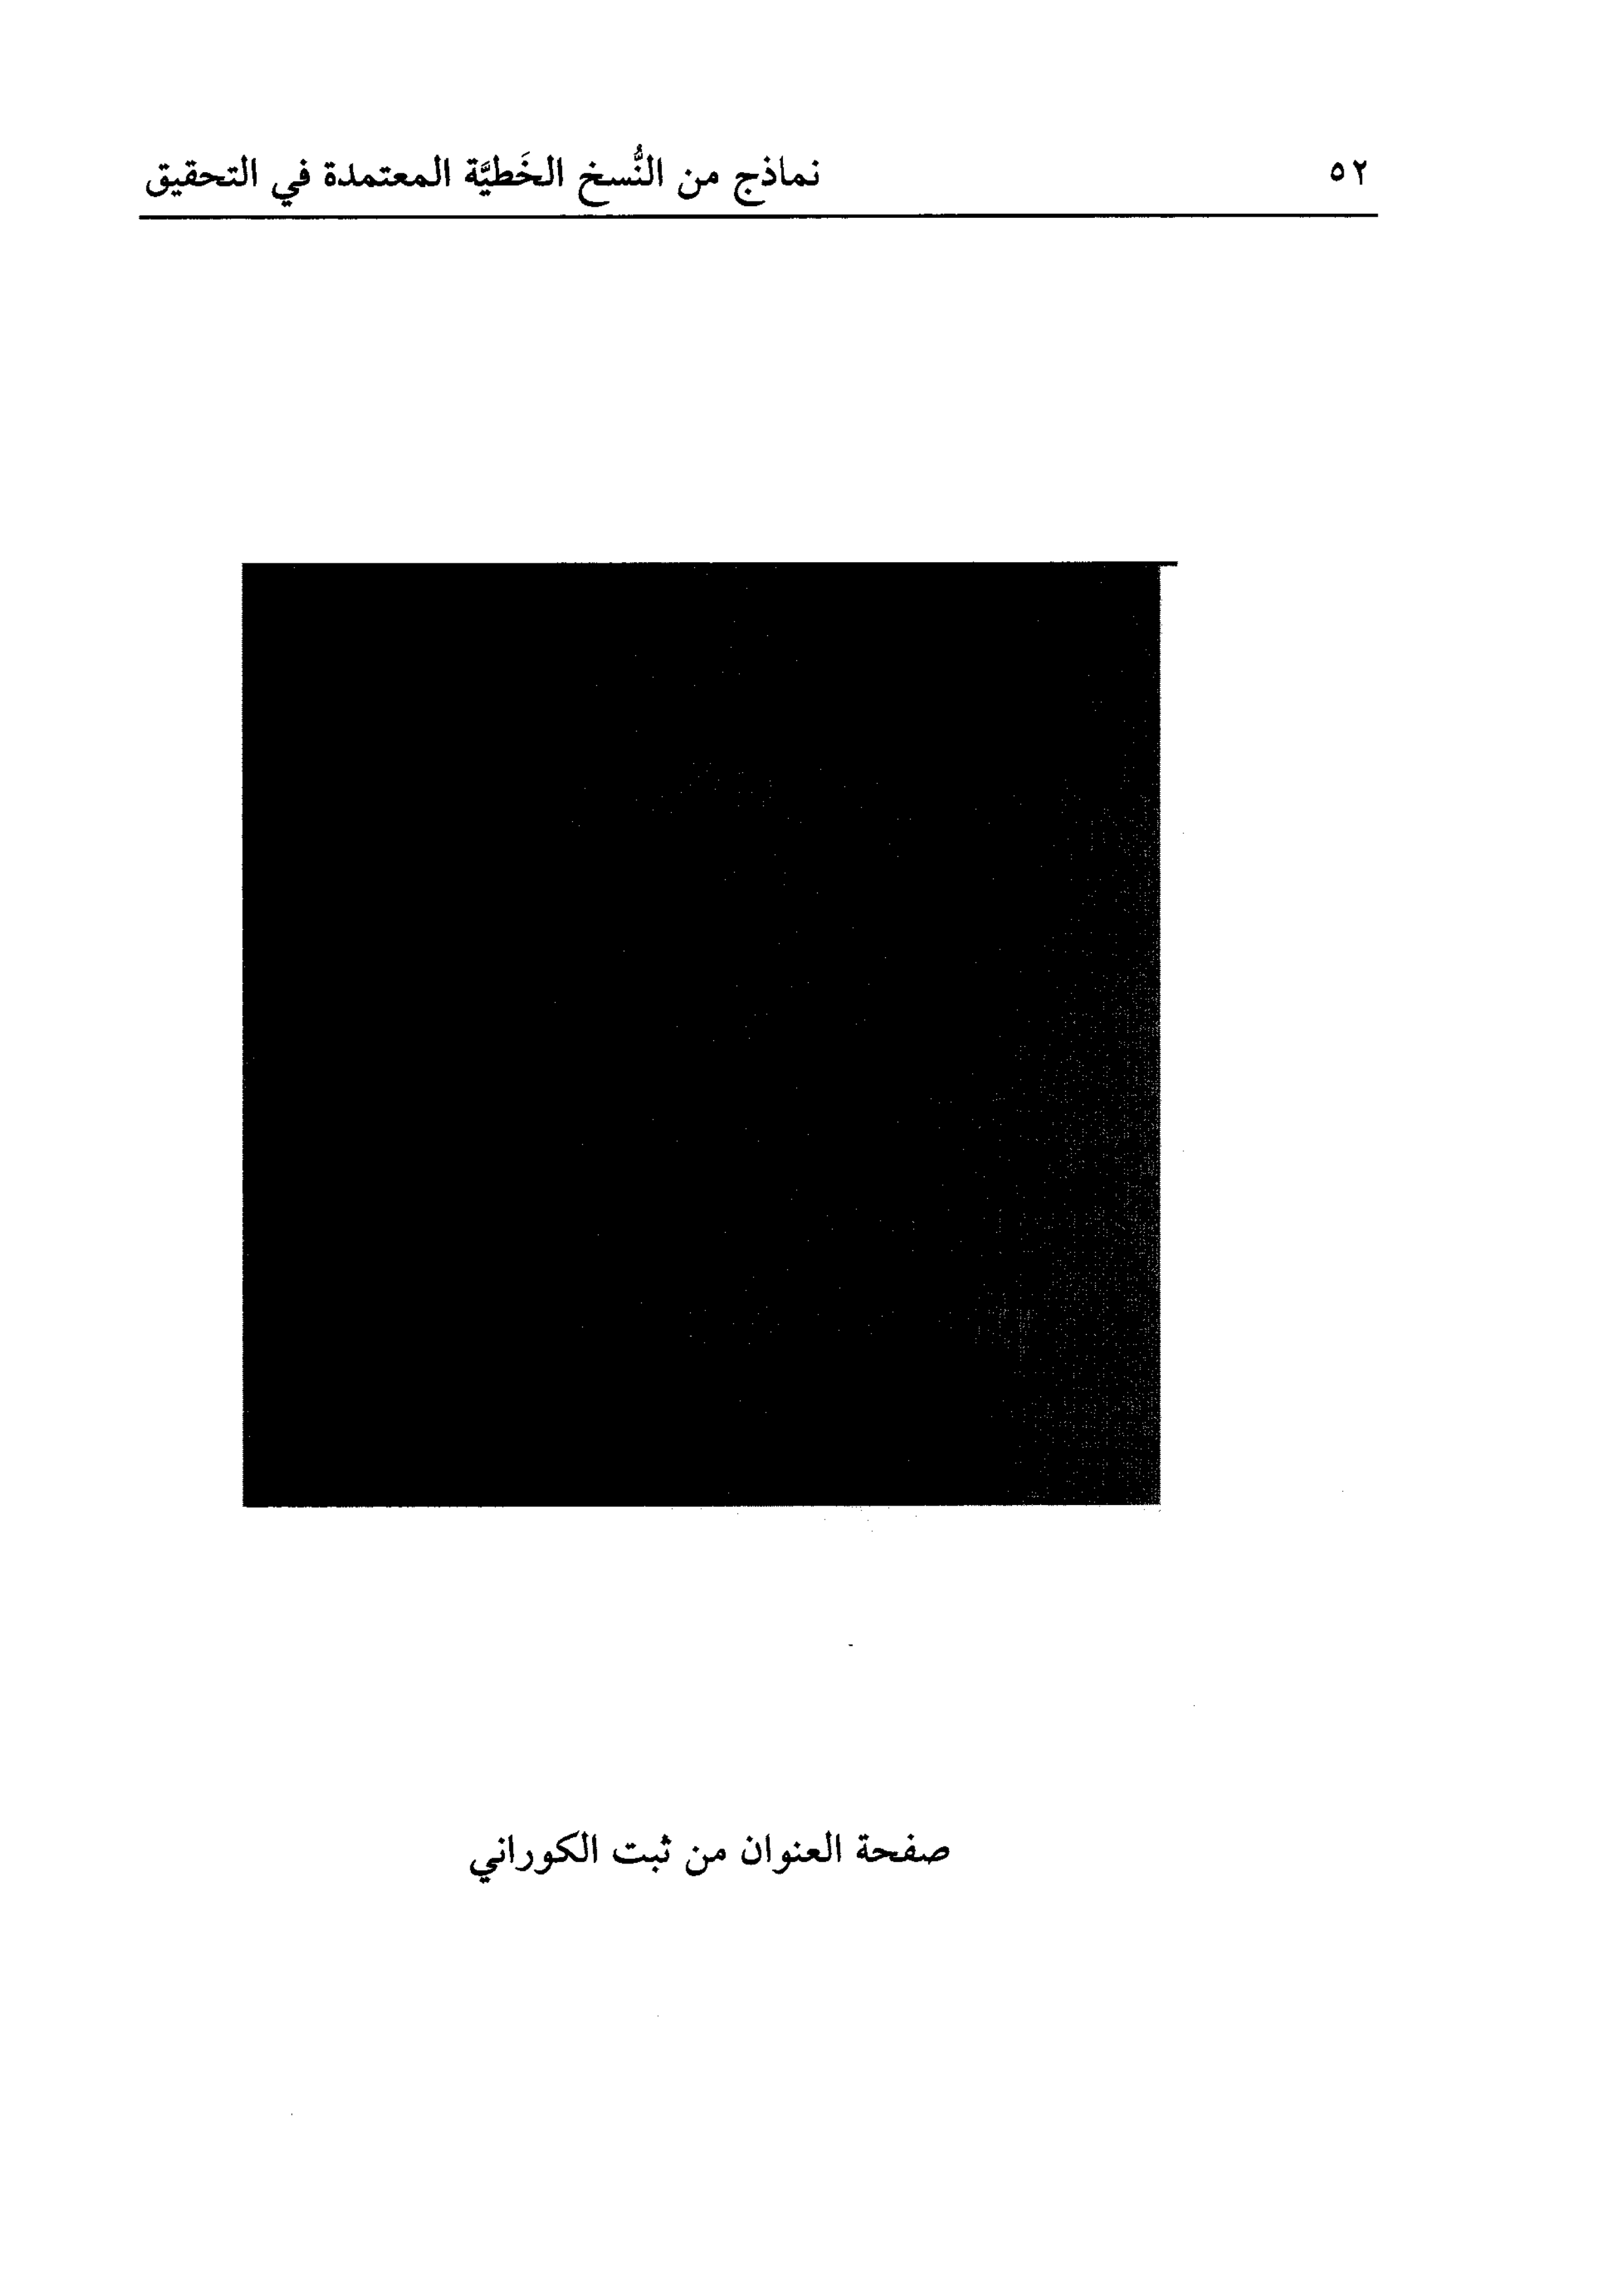 ٥٢ نماذج من النُّسخ الخَطيَّة المعتمدة في التحقيق
صفحة العنوان من ثبت الكوراني